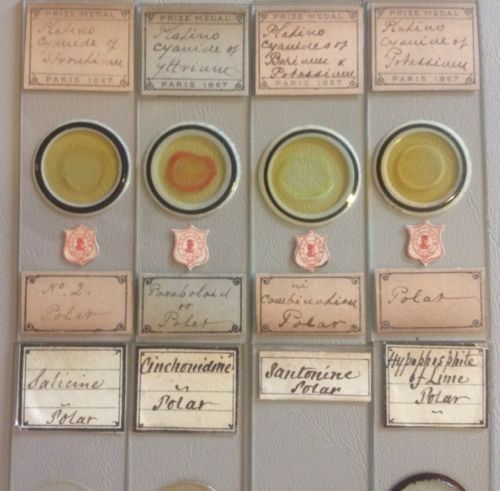 PRIZE MEDAL
Platino
cyanide of
Strontium
PARIS 1867
PRIZE MEDAL
Platino
cyanide of
yttrium
PARIS 1867
PRIZE MEDAL
Platino
cyanides of
Barium &
Potassium
PARIS 1867
PRIZE MEDAL
Platino
Cyanide of
Potassium
PARIS 1867
No. 2.
Polar
or
Polar
in
combination
Polar
Polar
Salicine
Polar
Cinchonidine
Polar
Santonine
Polar
Hypophosphite
of Lime
Polar